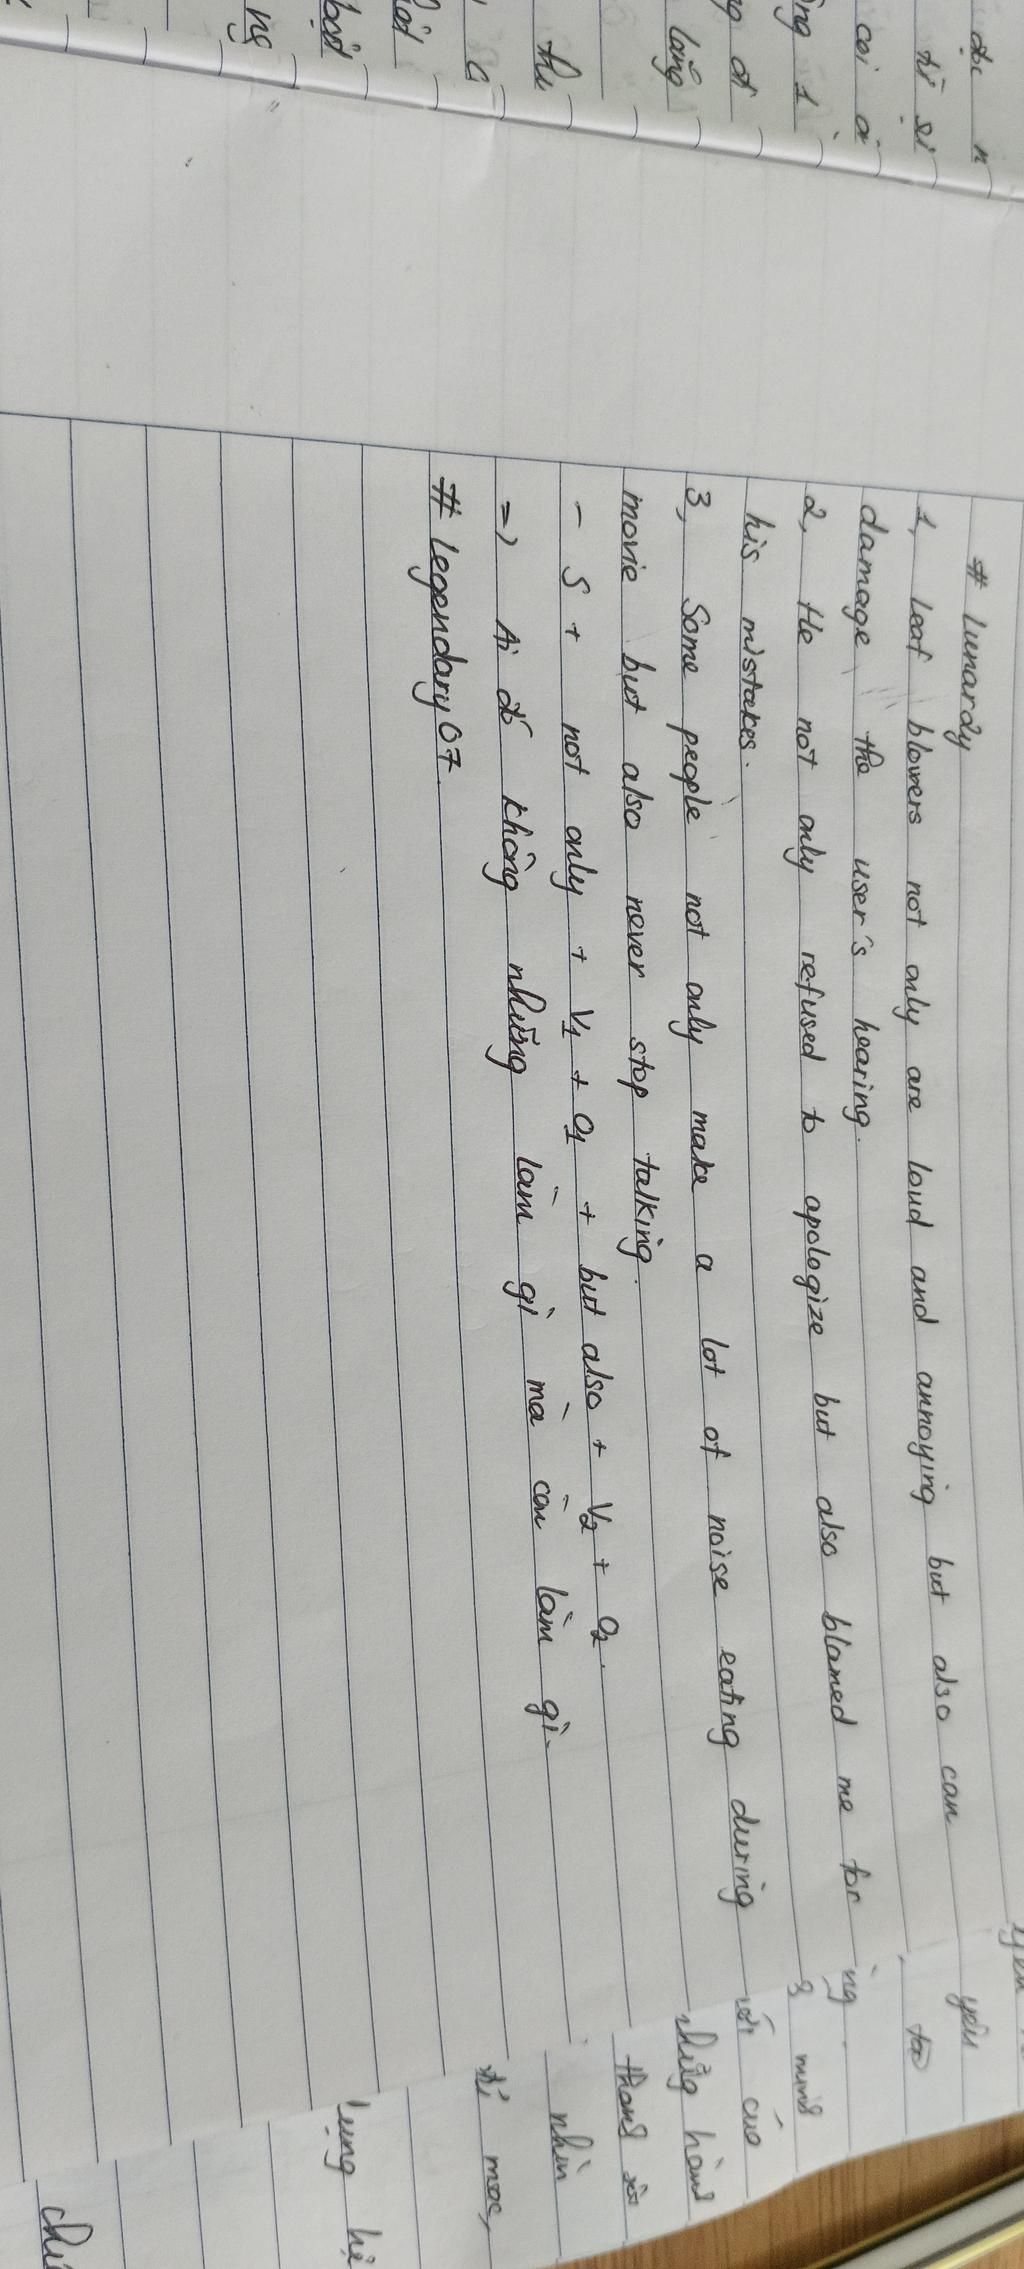 # Lunardy
1, Leaf blowers not only are loud and annoying but also can
damage the user's hearing.
2, He not only refused to apologize but also blamed me for
his mistakes.
3, Some people not only make a lot of noise eating during
movie but also never stop talking.
- S + not only + V1 + O1 + but also + V2 + O2.
=) Ai đó không những làm gì mà còn làm gì.
# Legendary07